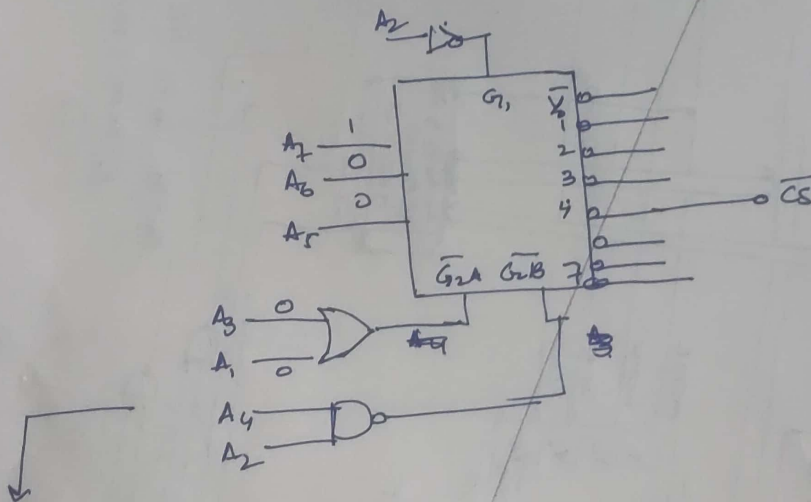 A2
G1
Y0
1
2
3
4
7
A7 1
A6 0
A5 0
G2A G2B
CS
A3 0
A1 0
A4
A2